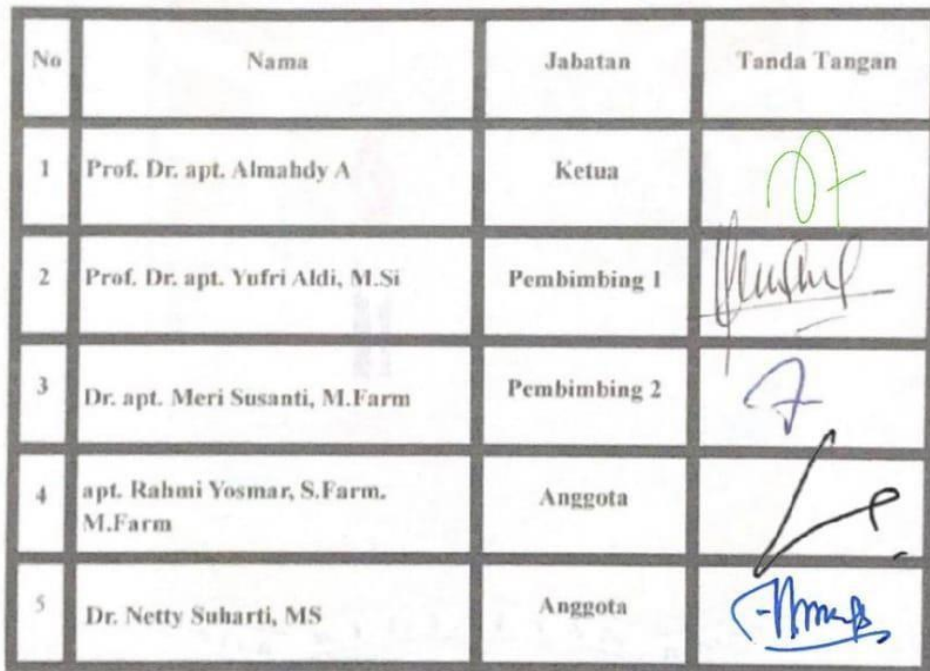 No Nama Jabatan Tanda Tangan
1 Prof. Dr. apt. Almahdy A Ketua
2 Prof. Dr. apt. Yufri Aldi, M.Si Pembimbing 1
3 Dr. apt. Meri Susanti, M.Farm Pembimbing 2
4 apt. Rahmi Yosmar, S.Farm. Anggota
M.Farm
5 Dr. Netty Suharti, MS Anggota